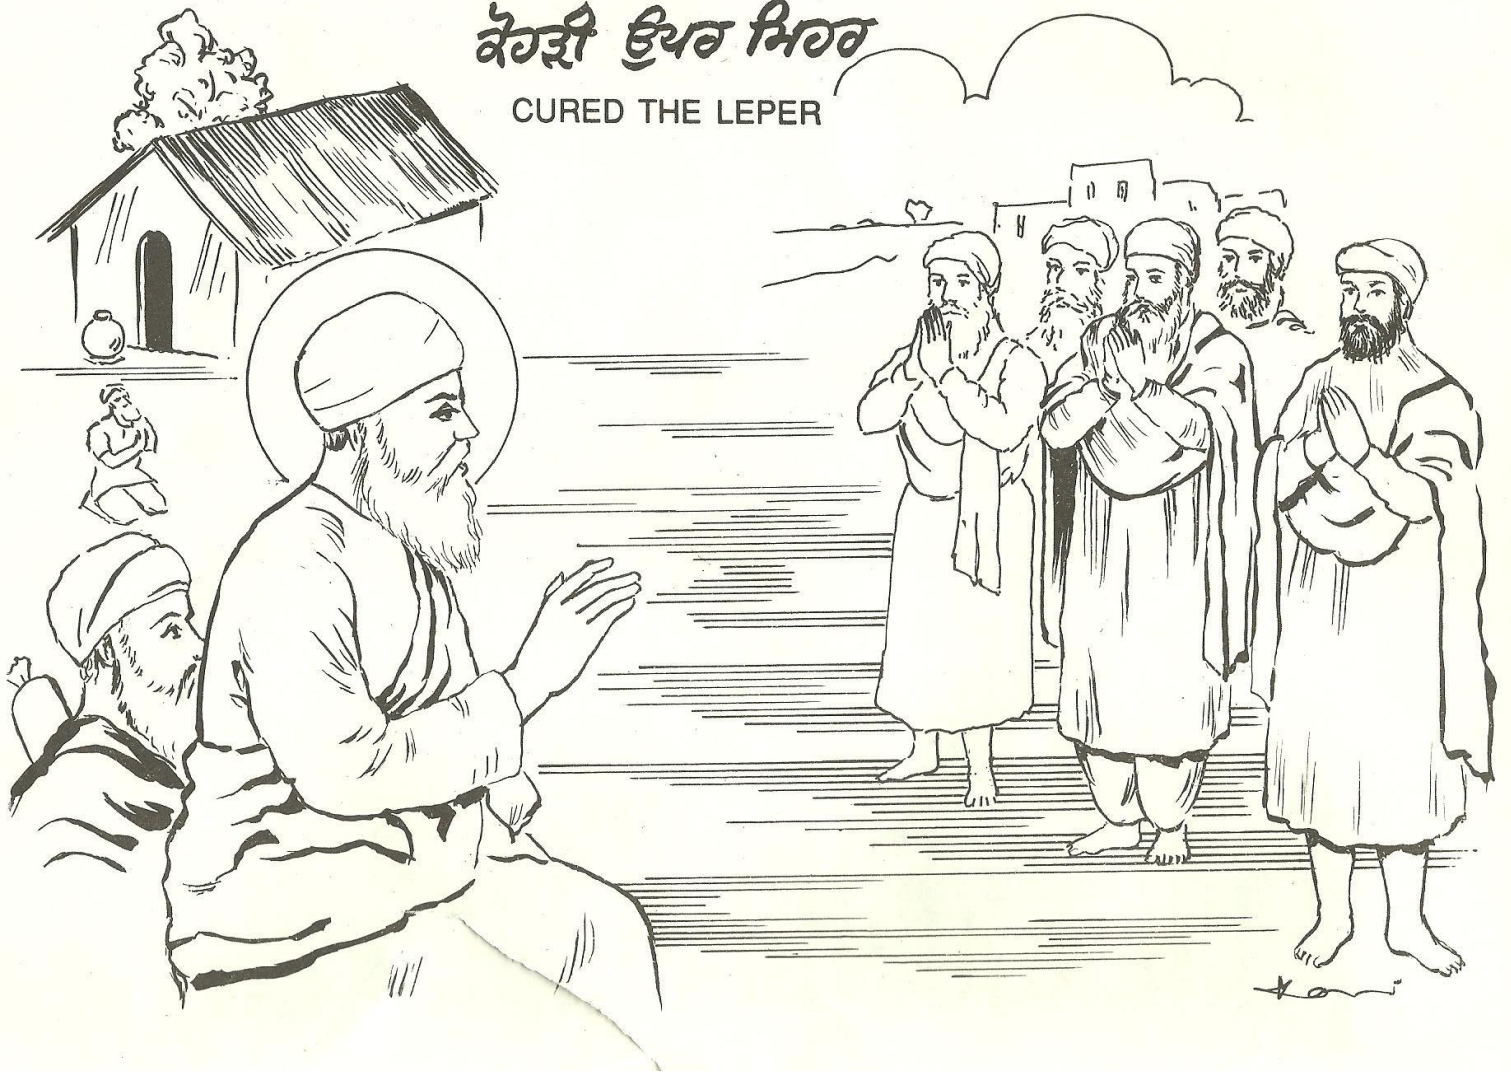 ਕੋਹੜੀ ਉਪਰ ਮਿਹਰ
CURED THE LEPER